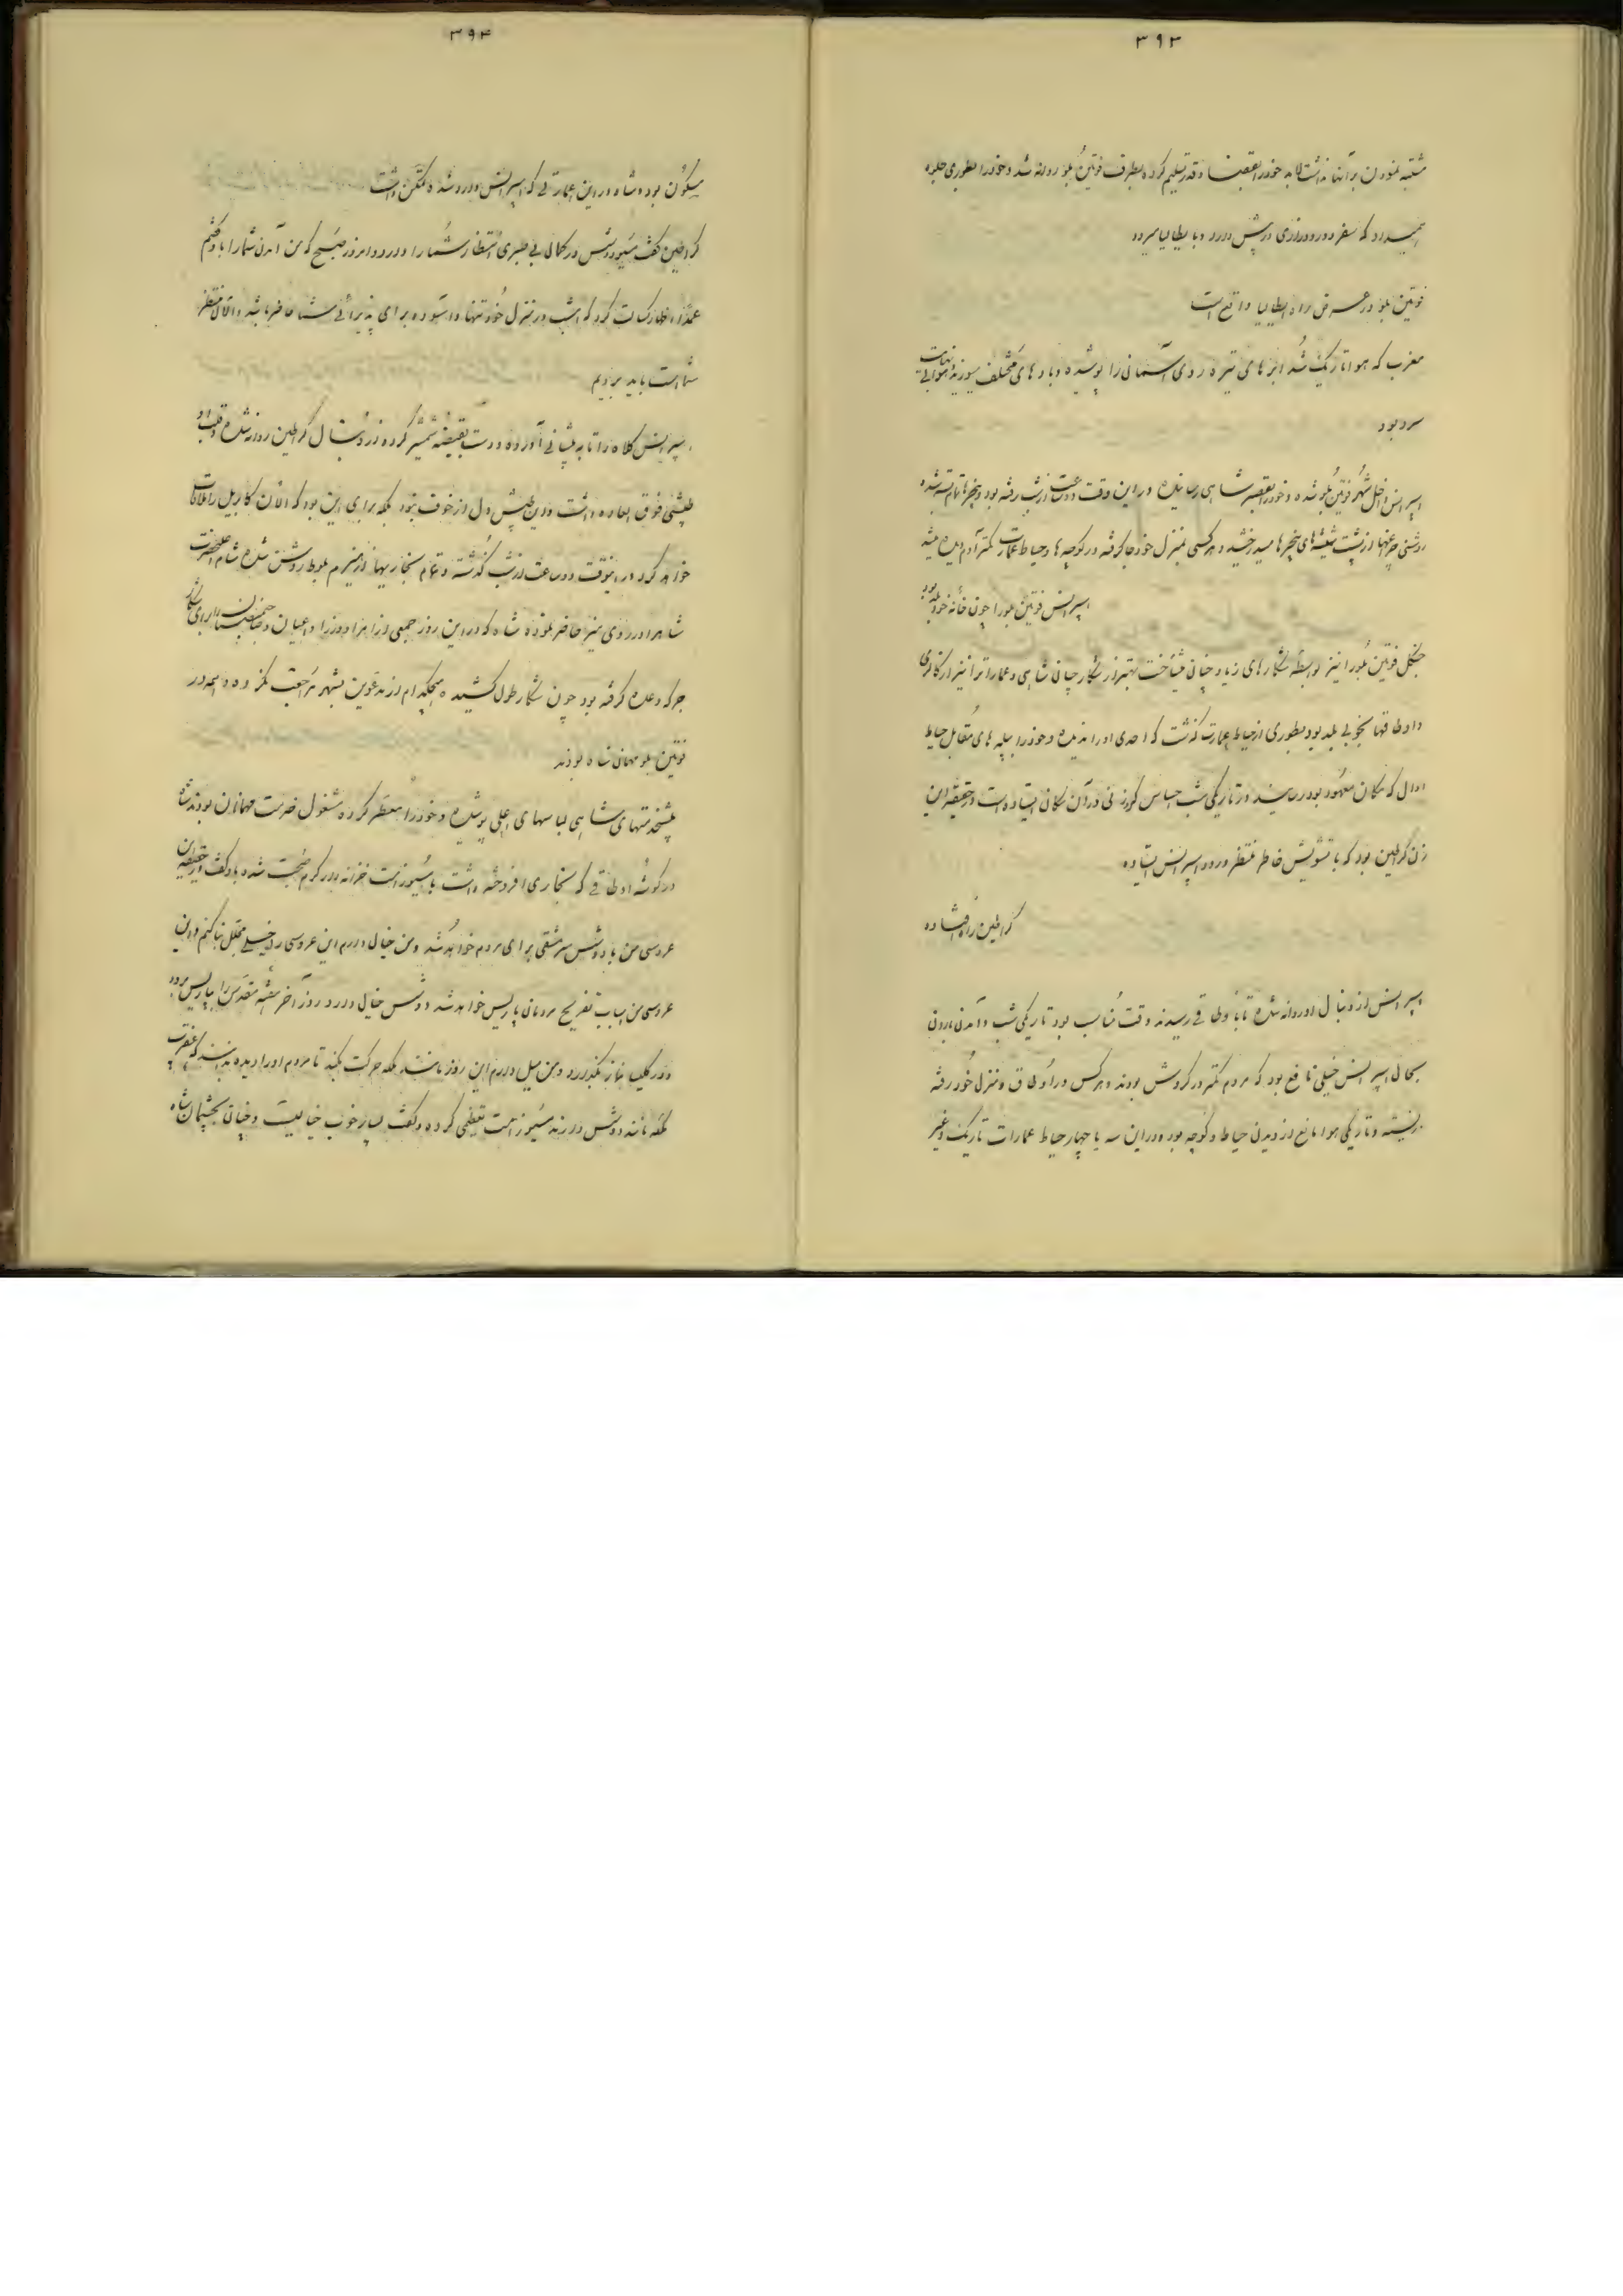 ۳۹۳
مشتبه نمودن بر آنها نداشت لابد خود را بقضا و قدر تسلیم کرده بطرف فونتن بلو روانه شد و خود را بطوری جلوه
میداد که سفر دور و درازی در پیش دارد و بایطالیا میرود
فونتن بلو در عرض راه ایطالیا واقع است
مغرب که هوا تاریک شد ابرهای تیره روی آسمان را پوشیده و بادهای مختلف میوزید و هوا بی نهایت
سرد بود
اسپرانس داخل شهر فونتن بلو شده و خود را بقصر شاهی رسانیده در این وقت دو ساعت از شب رفته بود و پنجره ها تمام بسته شده
روشنی چراغها از پشت شیشه های پنجره ها میدرخشید و هر کسی بمنزل خود جا گرفته در کوچه ها و حیاط عمارت کمتر آدم دیده میشد
اسپرانس فونتن بلو را چون خانه خود بلد بود
جنگل فونتن بلو را نیز بواسطه شکارهای زیاد چنان میشناخت بهتر از شکارچیان شاهی و عمارات را نیز از گالری
و اوطاقها بخوبی بلد بود بطوری از حیاط عمارت گذشت که احدی او را ندیده و خود را بپله های مقابل حیاط
اول که مکان معهود بود رسانید در تاریکی شب احساس کرد زنی در آن مکان ایستاده است در حقیقت این
زن گراطین بود که با تشویش خاطر منتظر ورود اسپرانس ایستاده
گراطین راه افتاده
اسپرانس از دنبال او روانه شده تا باوطاقی رسیدند وقت مناسب بود تاریکی شب و آمدن بارون
بحال اسپرانس خیلی نافع بود که مردم کمتر در گردش بودند و هر کس در اوطاق و منزل خود رفته
نشسته و تاریکی هوا مانع از دیدن حیاط و کوچه بود و در این سه یا چهار حیاط عمارات تاریک و غیر
۳۹۴
مسکون بود و شاه در این عمارتی که اسپرانس وارد شده تمکن داشت
گراطین گفت مسیو دوشس در کمال بی صبری انتظار شما را دارد و امروز صبح که من آمدن شما را باو گفتم
عمداً اظهار کسالت کرد که امشب در منزل خود تنها و آسوده برای پذیرائی شما حاضر باشد و الآن منتظر
شماست باید برویم
اسپرانس کلاه را تا به پیشانی آورده و دست بقبضه شمشیر کرده از دنبال گراطین روانه شده و قلب او
طپشی فوق العاده داشت و این طپش دل از خوف نبود بلکه برای این بود که الآن گابریل را ملاقات
خواهد کرد در اینوقت دو ساعت از شب گذشته و تمام بخاریها از هیزم بلوط روشن شده شام اعلیحضرت
شاه در روی میز حاضر بود شاه که در این روز جمعی از امرا و وزرا و اعیان و صاحبمنصبان را برای شکار
جرگه وعده گرفته بود چون شکار طول کشیده هیچکدام از مدعوین بشهر مراجعت نکرده و همه در
فونتن بلو مهمان شاه بودند
پیشخدمتهای شاهی لباسهای اعلی پوشیده و خود را معطر کرده مشغول خدمت مهمانان بودند شاه
در گوشه اوطاقی که بخاری افروخته داشت با مسیو زامت خزانه دار گرم صحبت شده باو گفت در حقیقت این
عروسی من با دوشس سرمشقی برای مردم خواهد شد و من خیال دارم این عروسی را خیلی مجلل بنا کنم و این
عروسی من اسباب تفریح مردمان پاریس خواهد شد دوشس خیال دارد روز آخر هفته مقدس را بپاریس برود
و در کلیسا نماز بگذارد و من میل دارم این روز مانند ملکه حرکت بکند تا مردم او را دیده بدانند که عنقریب
ملکه مانند دوشس دارند مسیو زامت تعظیمی کرده و گفت بسیار خوب خیالیست و چنان بچشمان شاه